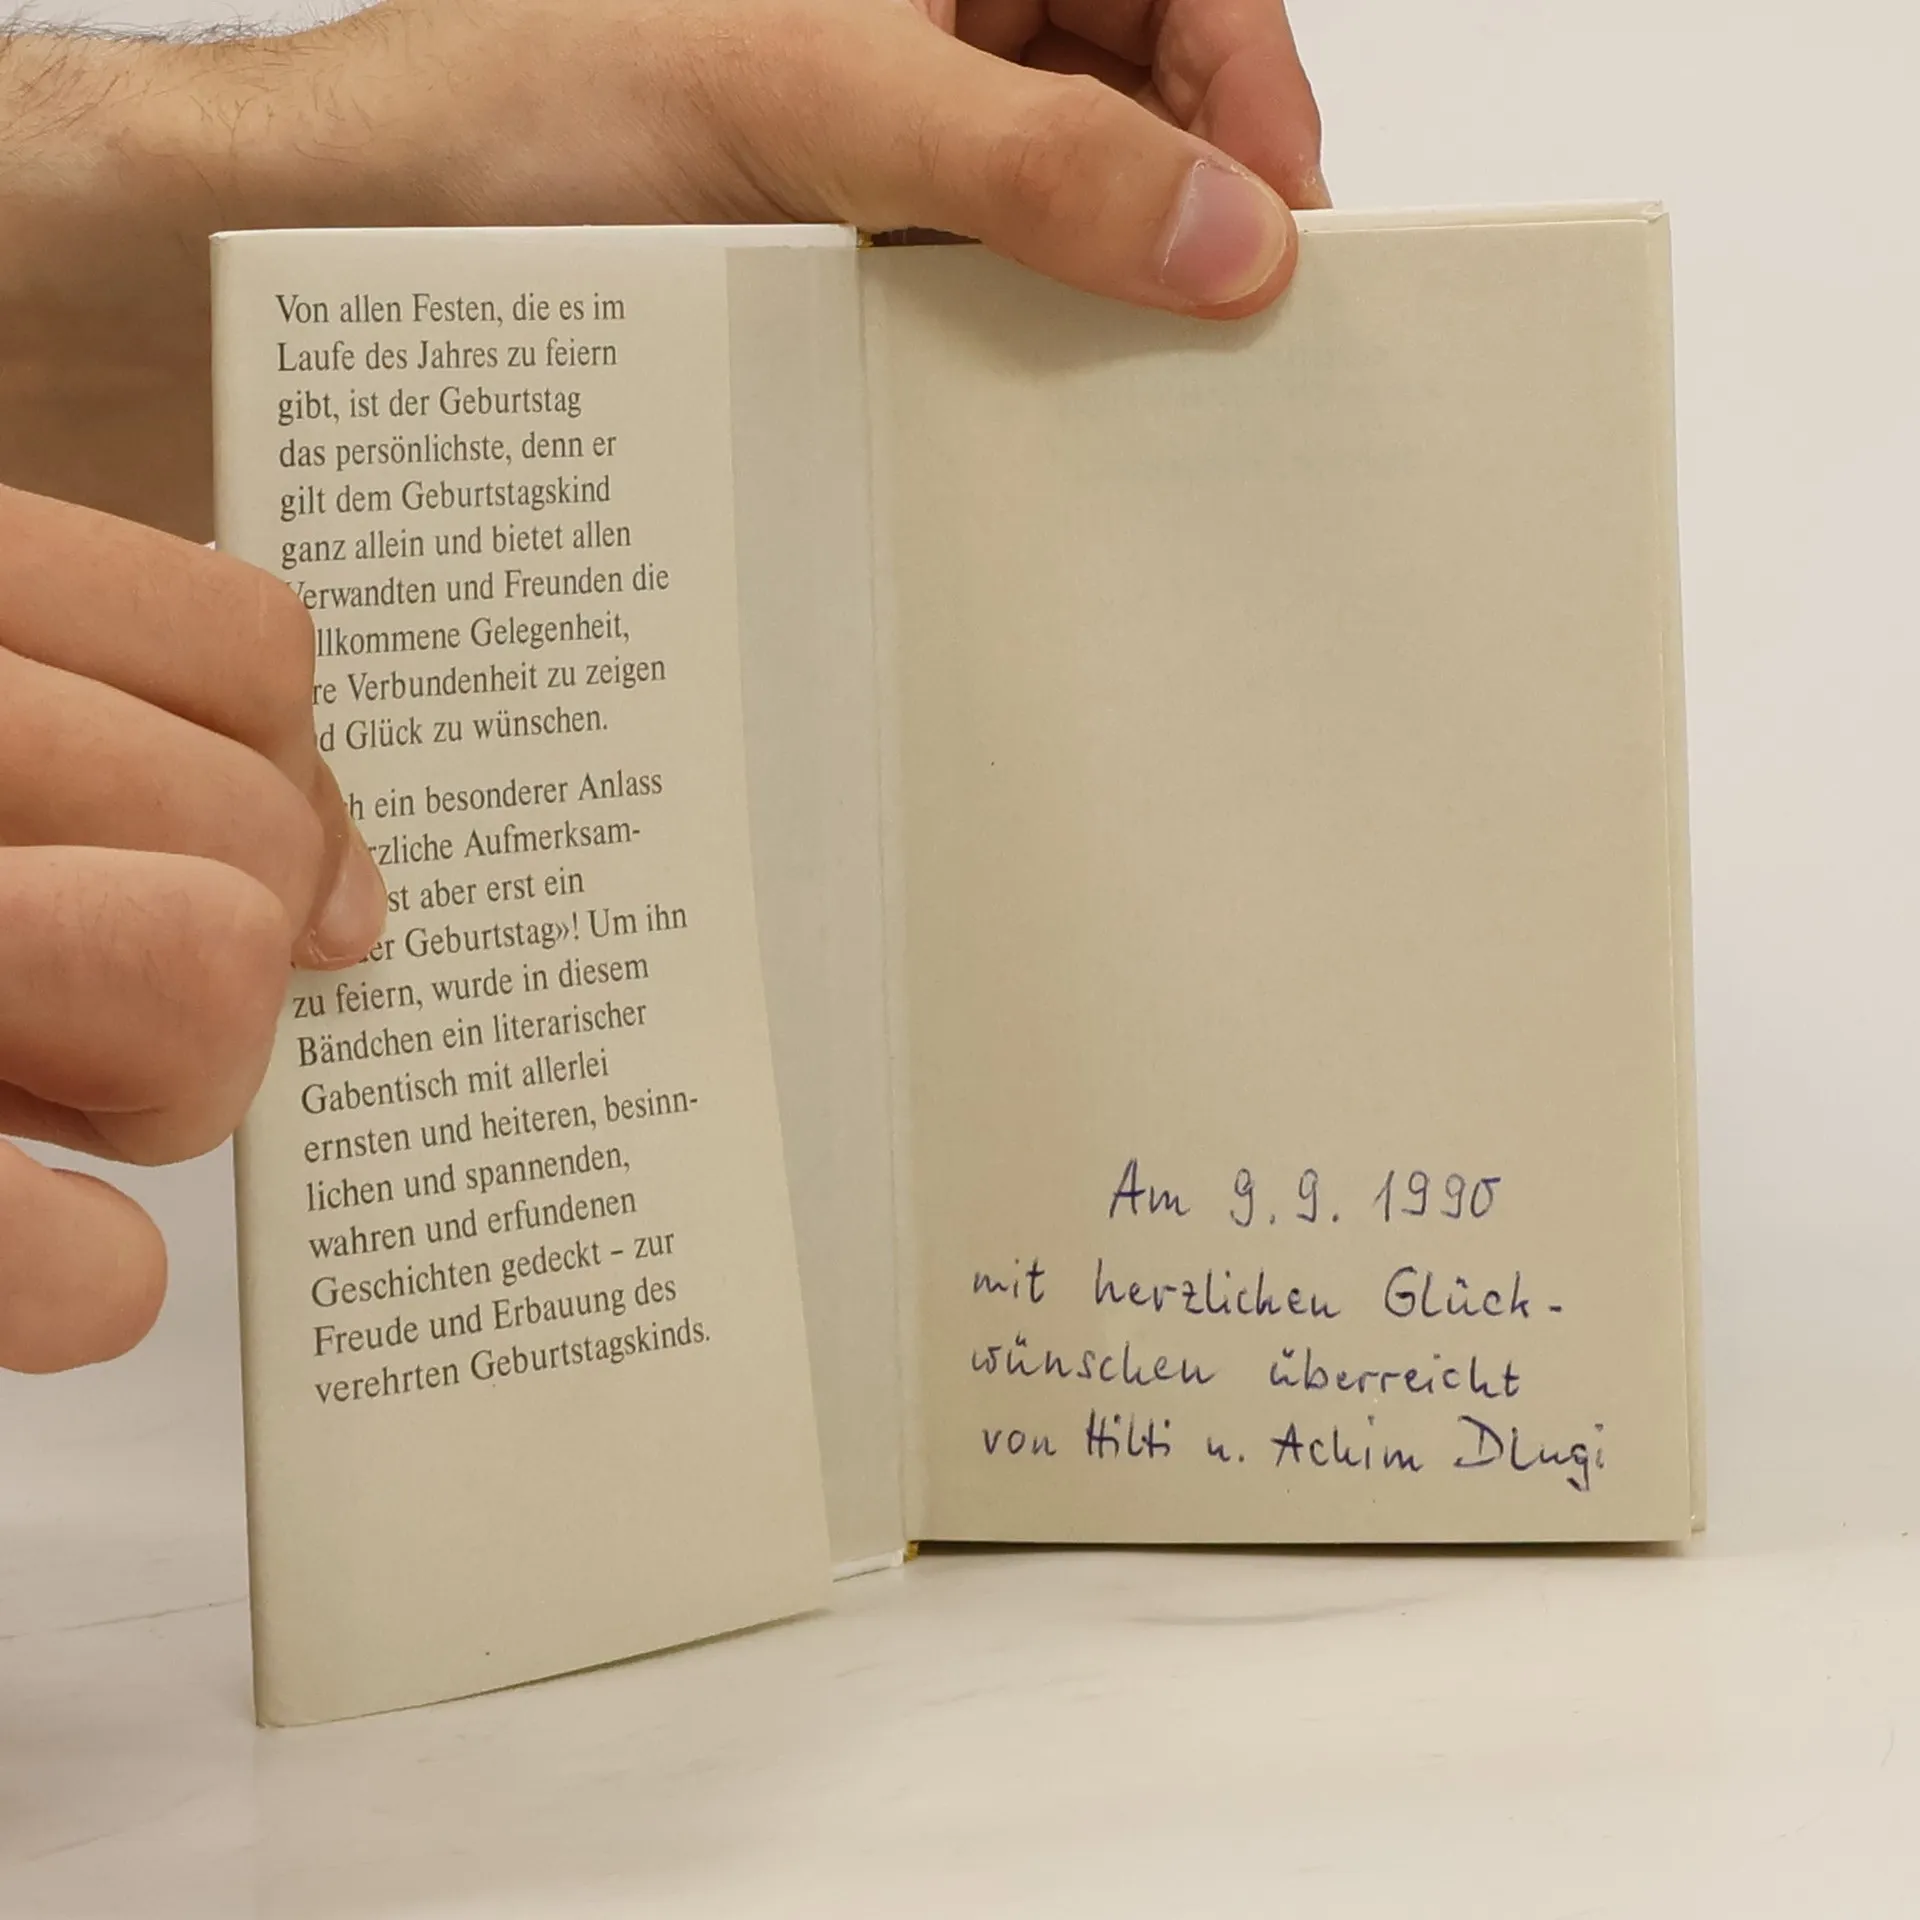 Von allen Festen, die es im
Laufe des Jahres zu feiern
gibt, ist der Geburtstag
das persönlichste, denn er
gilt dem Geburtstagskind
ganz allein und bietet allen
Verwandten und Freunden die
llkommene Gelegenheit,
re Verbundenheit zu zeigen
d Glück zu wünschen.
h ein besonderer Anlass
rzliche Aufmerksam-
st aber erst ein
er Geburtstag»! Um ihn
zu feiern, wurde in diesem
Bändchen ein literarischer
Gabentisch mit allerlei
ernsten und heiteren, besinn-
lichen und spannenden,
wahren und erfundenen
Geschichten gedeckt – zur
Freude und Erbauung des
verehrten Geburtstagskinds.
Am 9. 9. 1990
mit herzlichen Glück-
wünschen überreicht
von Hilti u. Achim Dlugi